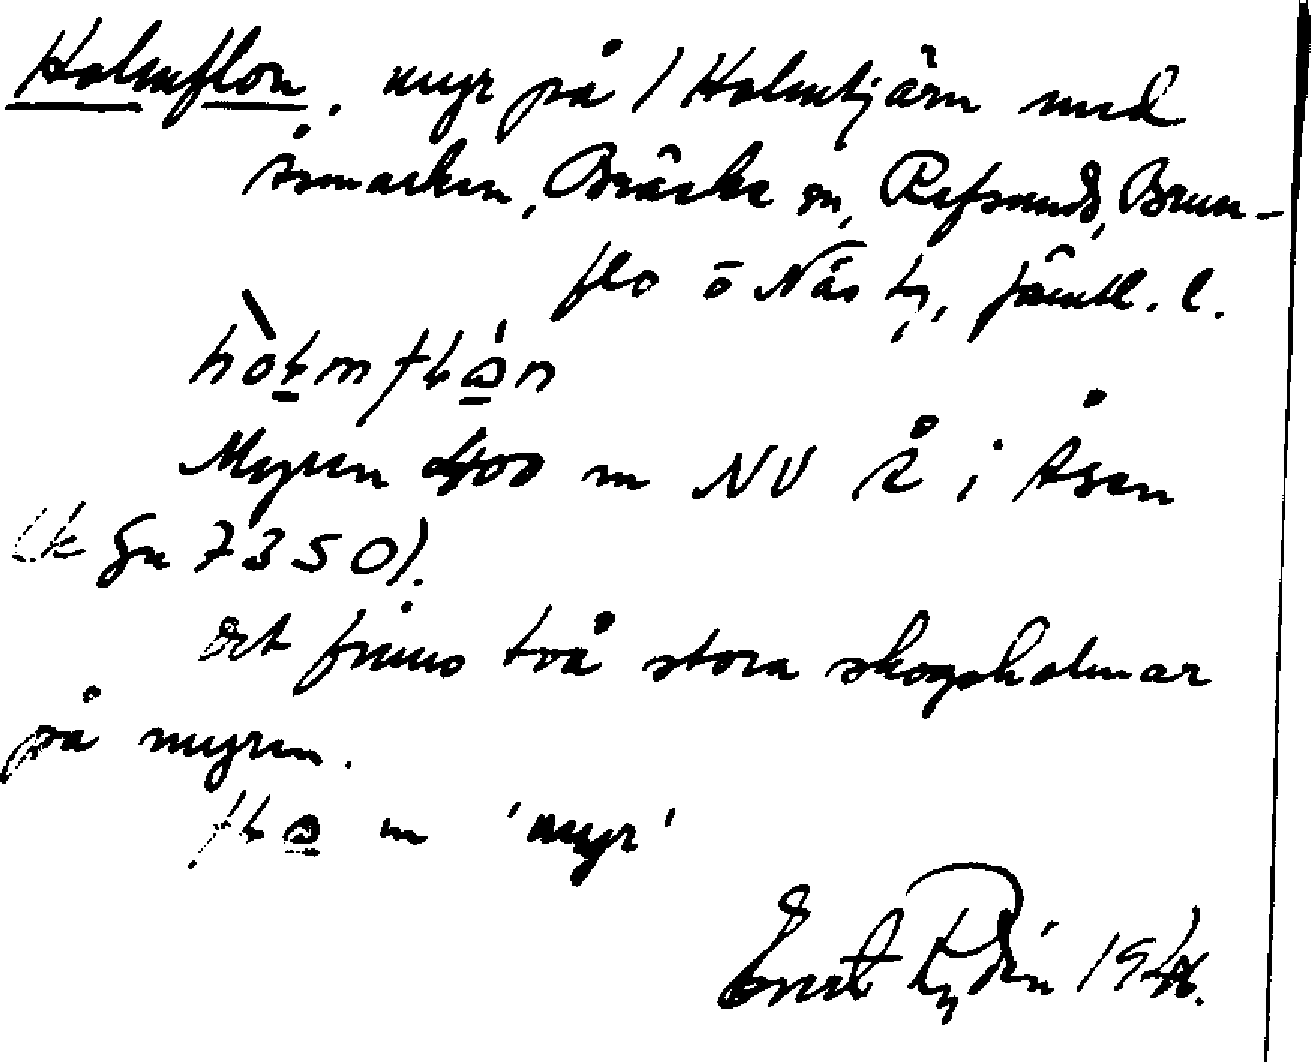 Holmflon, myr på 1 Holmtjärn med
Åsmarken, Bräcke sn, Refsunds, Brun-
flo o Näs tg, Jämtl. l.
Myren 400 m NV Å i Åsen
(k Gn 7350).
Det finns två stora skogsholmar
på myren.
m 'myr'
Ernst 1946.